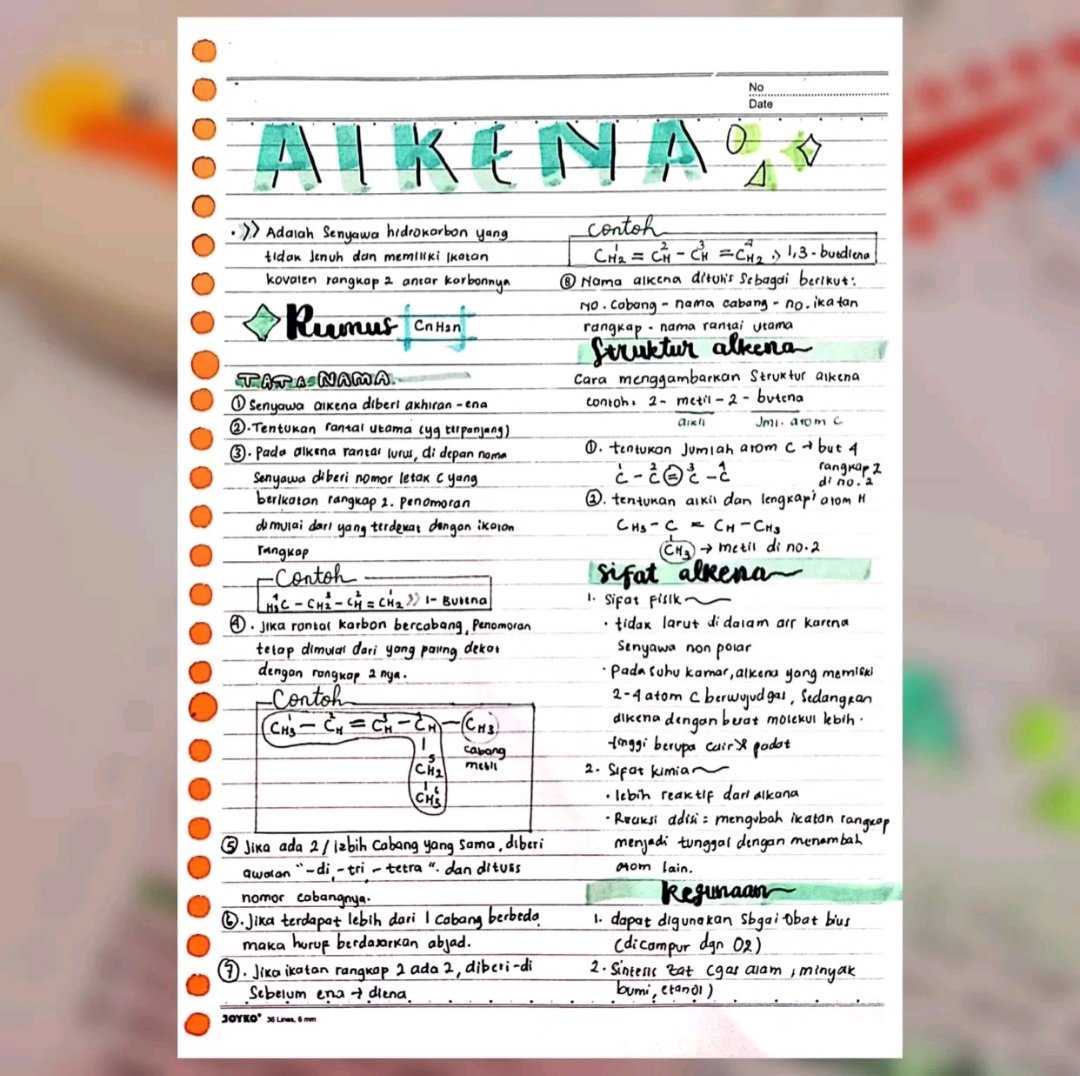 No
Date
ALKENA
>> Adalah Senyawa hidrokarbon yang
tidak Jenuh dan memiliki Ikatan
kovalen rangkap 2 antar karbonnya
Rumus CnH2n
TATA NAMA
① Senyawa alkena diberi akhiran -ena
②. Tentukan rantai utama (yg terpanjang)
③. Pada alkena rantai lurus, di depan nama
Senyawa diberi nomor letak C yang
berikatan rangkap 2. Penomoran
dimulai dari yang terdekat dengan ikatan
rangkap
Contoh
H3C⁴ - CH2³ - CH² = CH2¹ >> 1- Butena
④. Jika rantai karbon bercabang, Penomoran
tetap dimulai dari yang paling dekat
dengan rangkap 2 nya.
Contoh
CH3¹ - CH² = CH³ - CH⁴ - CH3
cabang
metil
CH2⁵
CH3⁶
⑤ Jika ada 2 / lebih Cabang yang Sama, diberi
awalan "-di, -tri - tetra". dan ditulis
nomor cabangnya.
⑥. Jika terdapat lebih dari 1 Cabang berbeda
maka huruf berdasarkan abjad.
⑦. Jika ikatan rangkap 2 ada 2, diberi -di
Sebelum ena → diena
JOYKO® 36 Lines, 6 mm
Contoh
CH2¹ = CH² - CH³ = CH2⁴ >> 1,3 - butdiena
⑧ Nama alkena ditulis Sebagai berikut:
No. Cabang - nama cabang - no. ikatan
rangkap - nama rantai utama
Struktur alkena
Cara menggambarkan Struktur alkena
contoh: 2- metil - 2 - butena
alkil Jml. atom C
①. tentukan Jumlah atom C → but 4
C¹ - C² = C³ - C⁴ rangkap 2
di no. 2
②. tentukan alkil dan lengkapi atom H
CH3 - C = CH - CH3
CH3 → metil di no. 2
Sifat alkena
1. Sifat fisik
• tidak larut di dalam air karena
Senyawa non polar
• Pada Suhu kamar, alkena yang memiliki
2-4 atom C berwujud gas, Sedangkan
alkena dengan berat molekul lebih
tinggi berupa cair & padat
2. Sifat kimia
• lebih reaktif dari alkana
• Reaksi adisi = mengubah ikatan rangkap
menjadi tunggal dengan menambah
atom lain.
Kegunaan
1. dapat digunakan Sbgai Obat bius
(dicampur dgn O2)
2. Sintesis zat (gas alam, minyak
bumi, etanol)